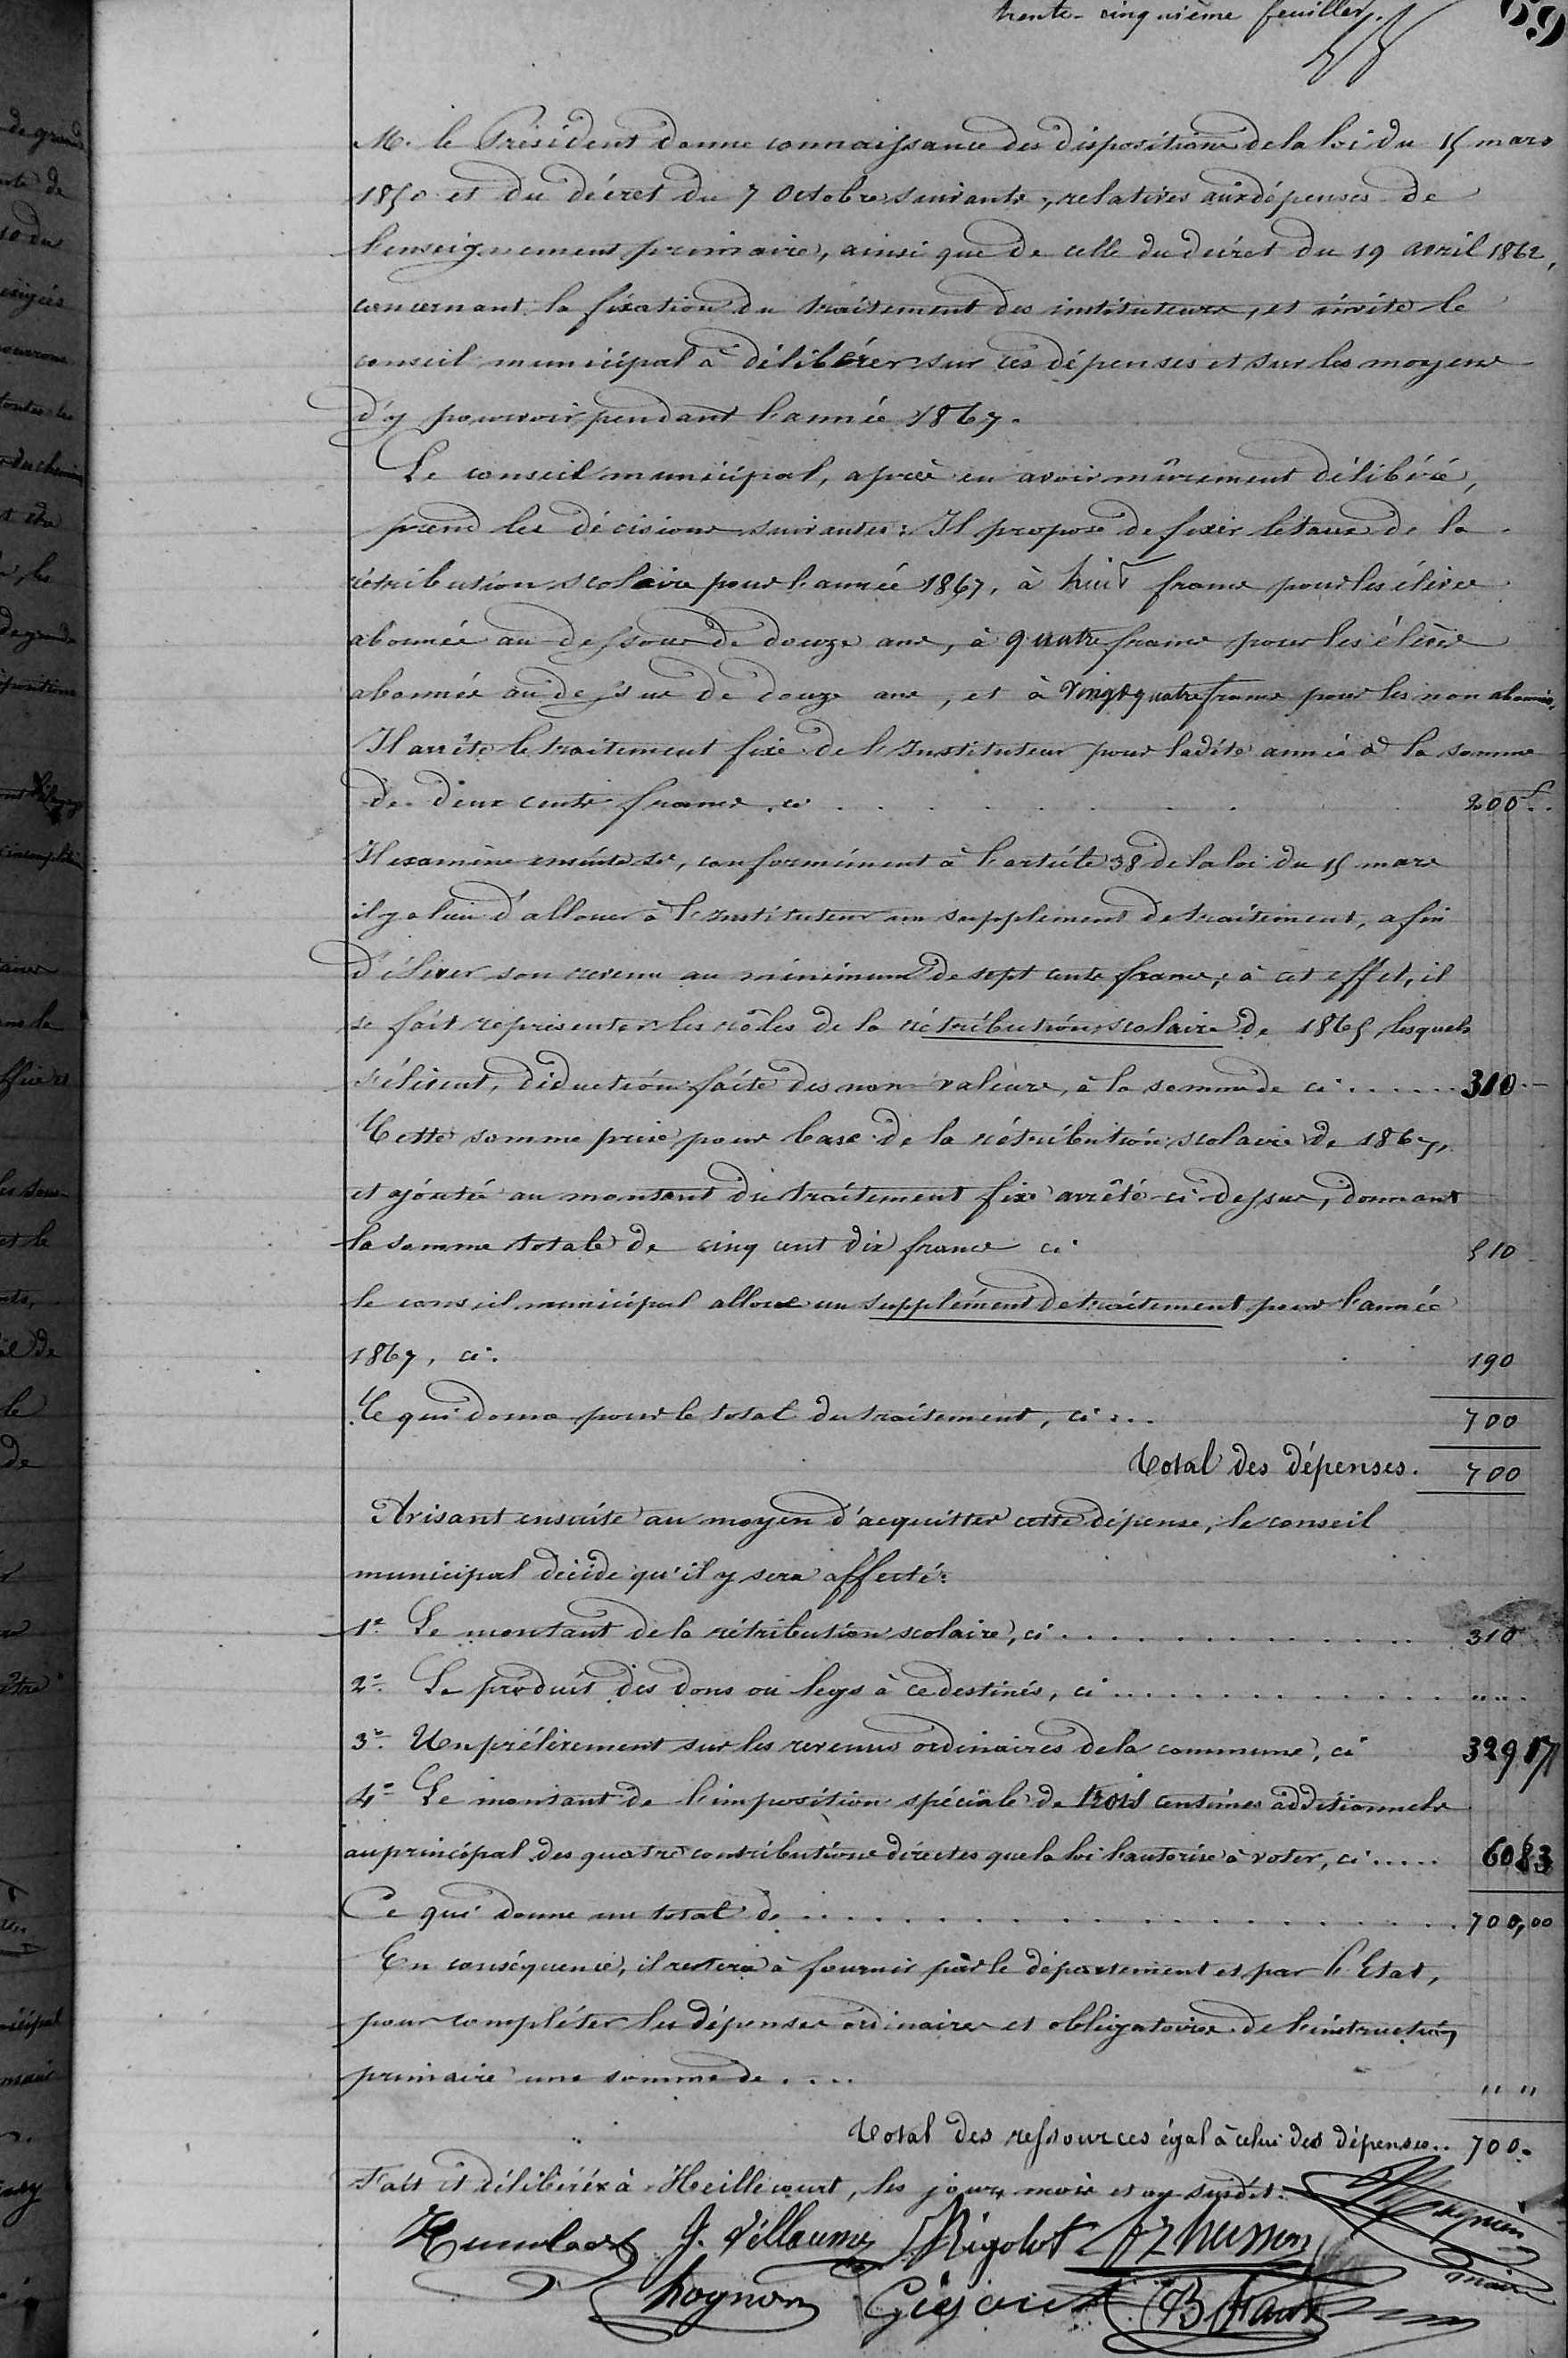 trente-cinquième feuillet.
69
M. le Président donne connaissance des dispositions de la loi du 15 mars
1850 et du décret du 7 Octobre suivants, relatives aux dépenses de
l'enseignement primaire, ainsi que de celle du décret du 19 avril 1862,
concernant la fixation du traitement des instituteurs, et invite le
conseil municipal à délibérer sur ces dépenses et sur les moyens
d'y pourvoir pendant l'année 1867.
Le conseil municipal, après en avoir mûrement délibéré,
prend les décisions suivantes: Il propose de fixer le taux de la
rétribution scolaire pour l'année 1867, à huit francs pour les élèves
abonnés au dessous de douze ans, à quatre francs pour les élèves
abonnés au dessus de douze ans, et à vingt quatre francs pour les non abonnés.
Il arrête le traitement fixe de l'Instituteur pour ladite année à la somme
de deux cents francs, ci . . . 200f.
Il examine ensuite si, conformément à l'article 38 de la loi du 15 mars
il y a lieu d'allouer à l'instituteur un supplément de traitement, afin
d'élever son revenu au minimum de sept cents francs; à cet effet, il
se fait représenter les rôles de la rétribution scolaire de 1865 lesquels
s'élèvent, déduction faite des non-valeurs, à la somme de ci . . . . . . 310
Cette somme prise pour base de la rétribution scolaire de 1867,
et ajoutée au montant du traitement fixe arrêté ci-dessus, donnant
la somme totale de cinq cent dix francs ci 510
le conseil municipal alloue un supplément de traitement pour l'année
1867, ci. 190
Ce qui donne pour le total du traitement, ci . . . 700
Total des dépenses. 700
Avisant ensuite au moyen d'acquitter cette dépense, le conseil
municipal décide qu'il y sera affecté:
1° Le montant de la rétribution scolaire, ci . . . . . . 310
2° Le produit des dons ou legs à ce destinés, ci . . . . . . " "
3° Un prélèvement sur les revenus ordinaires de la commune, ci 329 17
4° Le montant de l'imposition spéciale de trois centimes additionnels
au principal des quatre contributions directes que la loi l'autorise à voter, ci . . . . . 60 83
Ce qui donne un total de . . . . . . 700,00
En conséquence, il restera à fournir par le département et par l'Etat,
pour compléter les dépenses ordinaires et obligatoires de l'instruction
primaire une somme de . . . . " "
Total des ressources égal à celui des dépenses.. 700.
Fait et délibéré à Heillecourt, les jour, mois et an susdits.
J. Villaume Rigolot Husson
maire